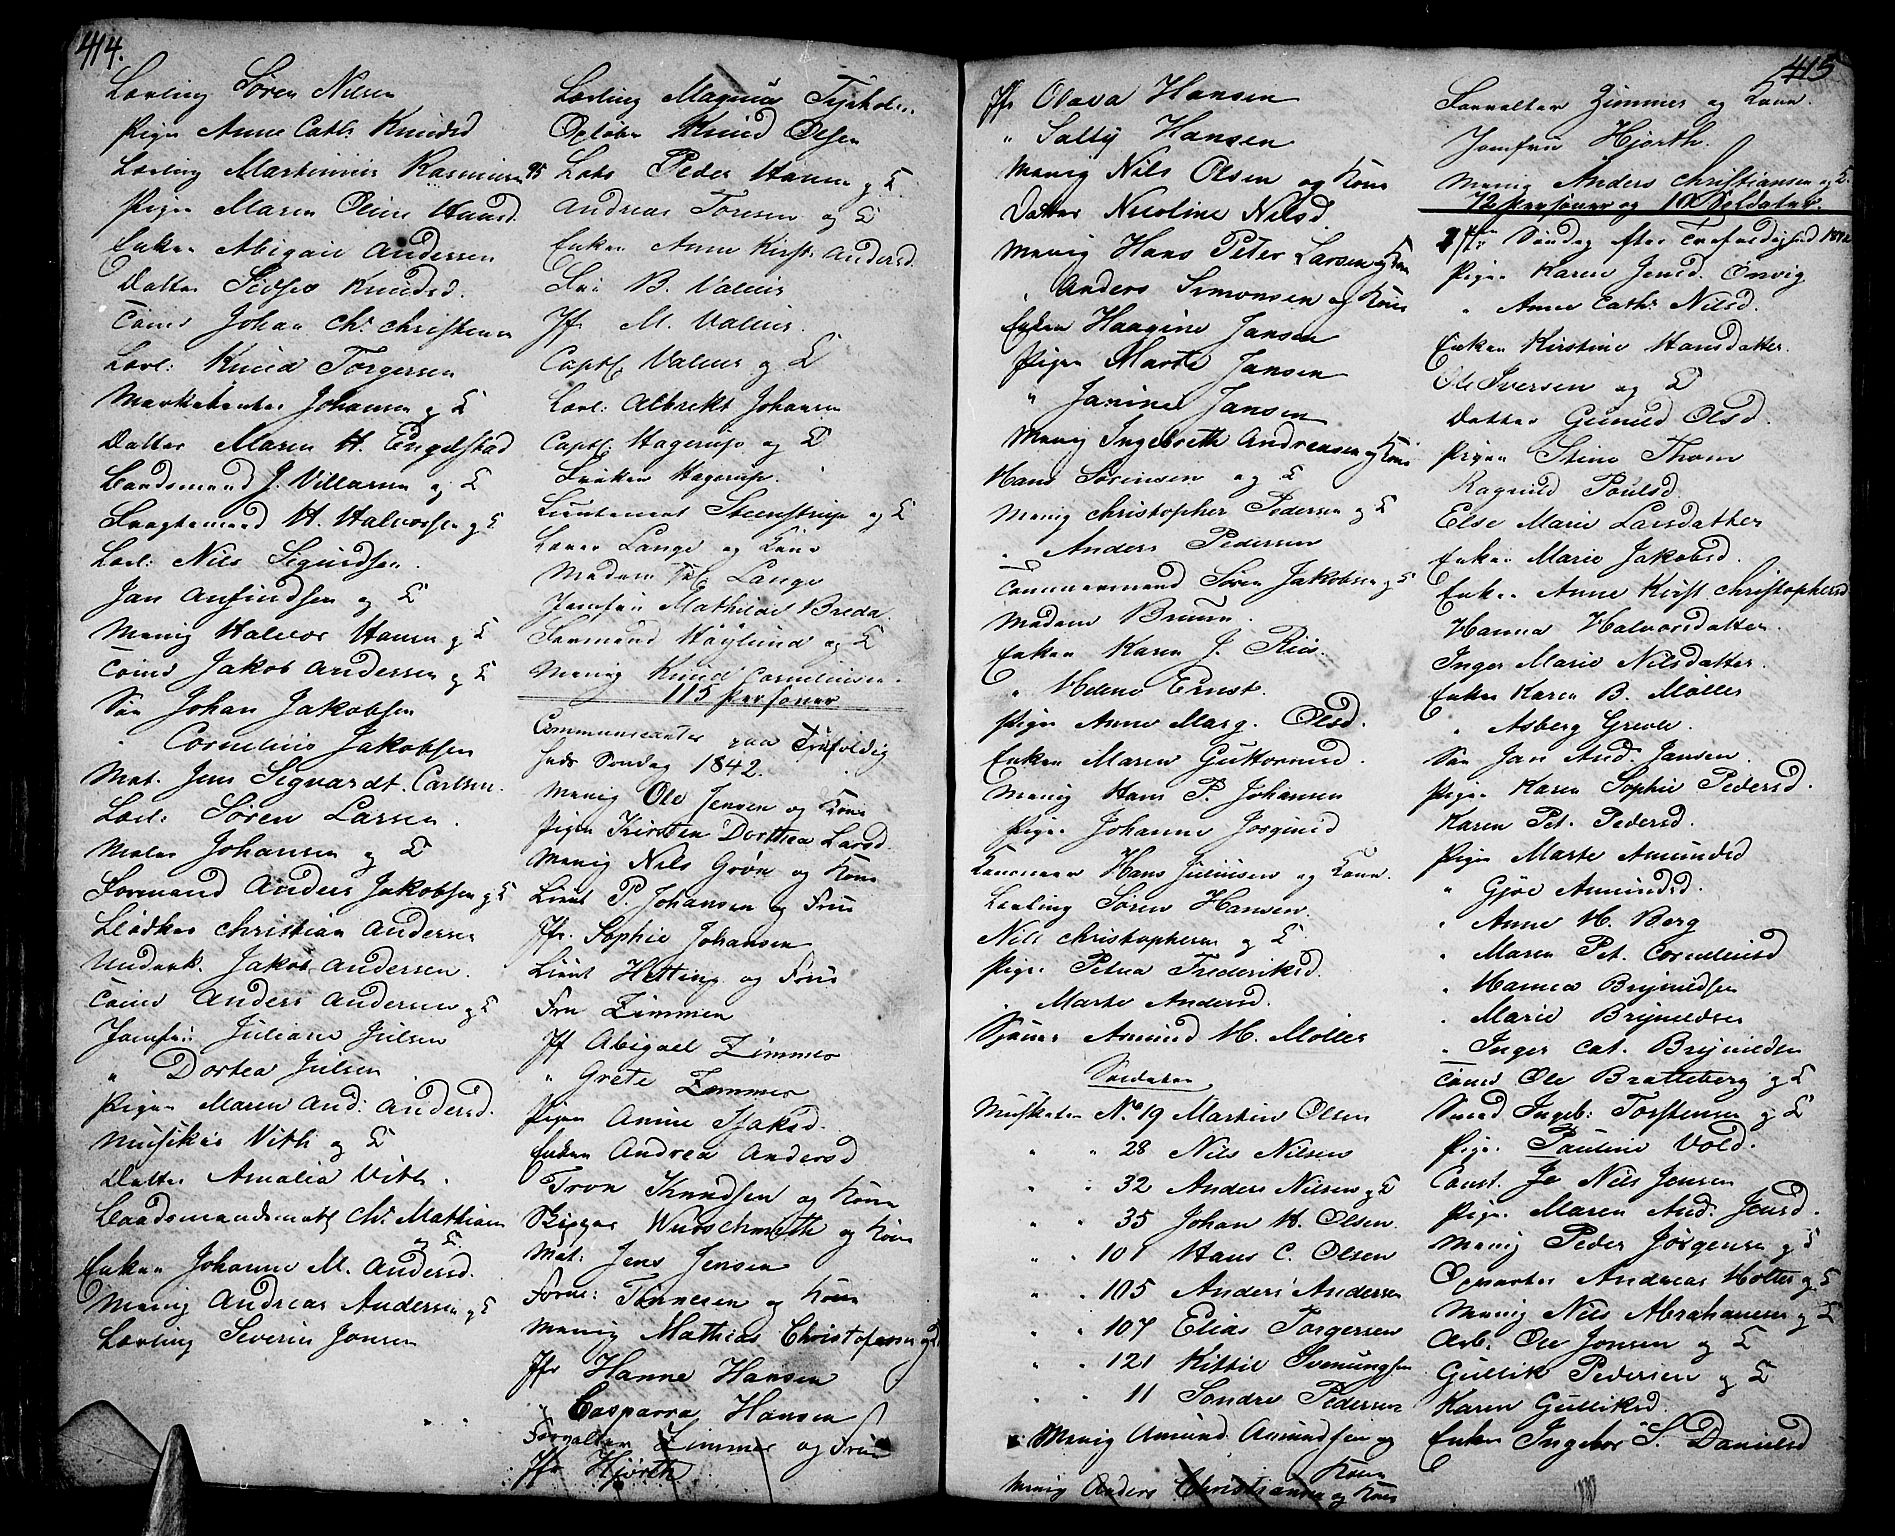 414.
Lærling Søren Nilsen
Pigen Anne Cath: Knudsd
Lærling Martinius Rasmusen
Pigen Maren Oline Hansd.
Enken Abigail Andersen
Datter Knudsd.
Johan Chr Christensen
Lærl: Knud Torgersen
Marketenter Johansen og
Datter Maren H. Engelstad
Baadsmand J. Villarsen og
H. Halvorsen og
Lærl: Nils Sigurdsen.
Jan Anfindsen og
Menig Halvor Hansen og
Jakob Andersen og
Søn Johan Jakobsen
Cornelius Jakobsen
Mat. Jens Sigvardt Carlsen.
Lærl: Søren Larsen.
Maler Johansen og
Formand Anders Jakobsen og
Christian Andersen
Underk. Jakob Andersen.
Anders Andersen og
Jomfru Juliane Julsen
" Dortea Julsen
Pigen Maren And: Andersd.
Musikus Vith og
Datter Amalia Vith.
Baadsmandsmath Chr. Mathiasen
og
Enken Johanne M. Andersd.
Menig Andreas Andersen og
Lærling Severin Jonsen
Lærling Magnus
Opløber Knud Olsen
95 Lods Peder Hansen og
Andreas Toresen og
Enken Anne Kirst: Andersd.
B. Valeur
Jfr M. Valeur.
Captl Valeur og
Lærl: Albrekt Johansen
Captl Hagerup og
Frøken Hagerup.
Lieutenant Steenstrup og
Lange og Kone
Madam Lange
Jomfru Mathilde Breda
Formand Høglund og
Menig Knud Cornelius.
115 Personer
Communicanter paa Trefoldig
heds Søndag 1842.
Menig Ole Jensen og Kone
Pigen Kirsten Dorthea Larsd.
Menig Nils Grøn og Kone
Lieut P. Johansen og Frue
Jfr. Sophie Johansen
Lieut Hetting og Frue
Fru Zimmer
Jf Abigael Zimmer
" Grete Zimmer
Pigen Anne Isaksd.
Enken Andrea Andersd
Tron Knudsen og Kone
Skipper og Kone
Mat: Jens Jensen
Form: Tønnesen og Kone
Menig Mathias Christophersen og
Jfr Hanne Hansen
" Casparra Hansen
Forvalter Zimmer og Frue
Jfr Hjorth
415
Jfr Olava Hansen
" Sally Hansen
Menig Nils Olsen og Kone
Datter Nicoline Nilsd.
Menig Hans Peter Larsen og Kone
Anders Simonsen og Kone
Enken Haagine Jansen
Pigen Marte Jansen
" Janine Jansen
Menig Ingebreth Andreasen og Kone
Hans Sørensen og
Menig Christopher Pedersen og
Anders Pedersen
Tømmermand Søren Jakobsen og
Madam Bruun.
Enken Karen J. Riis.
" Helene Ernst.
Pigen Anne Marg. Olsd.
Enken Maren Guttormsd.
Menig Hans P. Johansen
Pigen Johanne Jørginsd
Hans Juliussen og Kone.
Lærling Søren Hansen.
Nils Christophersen og
Pigen Petrea Frederiksd.
" Marte Andersd.
Amund H. Møller
Soldater
Musketer No 19 Martin Olsen
" " 28 Nils Nilsen
" " 32 Anders Nilsen og
" " 35 Johan H. Olsen.
" " 101 Hans C. Olsen
" " 105 Anders Andersen
" " 107 Elias Torgersen
" " 121 Kittil Svenungsen
" " 11 Søndre Pedersen
Menig Amund Amundsen og
Kone
Menig Anders Christiansen og Kone
Forvalter Zimmer og Kone.
Jomfru Hjorth.
Menig Anders Christiansen og
72 Personer og 10 Soldater.
Søndag efter Trefoldighed 1842
Pigen Karen Jensd. Ønvig
" Anne Cath: Nilsd.
Enken Kirstine Hansdatter.
Ole Iversen og
Datter Gunild Olsd.
Pigen Stine Thom
Ragnild Poulsd.
Else Marie Larsdatter
Enken Marie Jakobsd.
Enken Anne Kirst Christophersd
Hanna Halvorsdatter.
Inger Marie Nilsdatter.
Enken Karen B. Møller
" Asberg Greve.
Søn Jan And. Jansen.
Pigen Karen Sophie Pedersd.
Karen Pet. Pedersd.
Pigen Marte Amundsd
" Gjøe Amundsd.
" Anne M. Berg
" Maren Pet. Corneliusd
" Hanna Brynildsen
" Marie Brynildsen
" Inger Cat. Brynildsen
Ole Bratteberg og
Smed Ingeb: Torstensen og
Pigen Pauline Vold.
Const. Nils Jensen
Pigen Maren And. Jensd.
Menig Peder Jørgensen og
Opvarter Andreas Holter og
Menig Nils Abrahamsen og
Arb. Ole Jonsen og
Gullik Pedersen og
Karen Gulliksd.
Enken Ingebor S. Danielsd